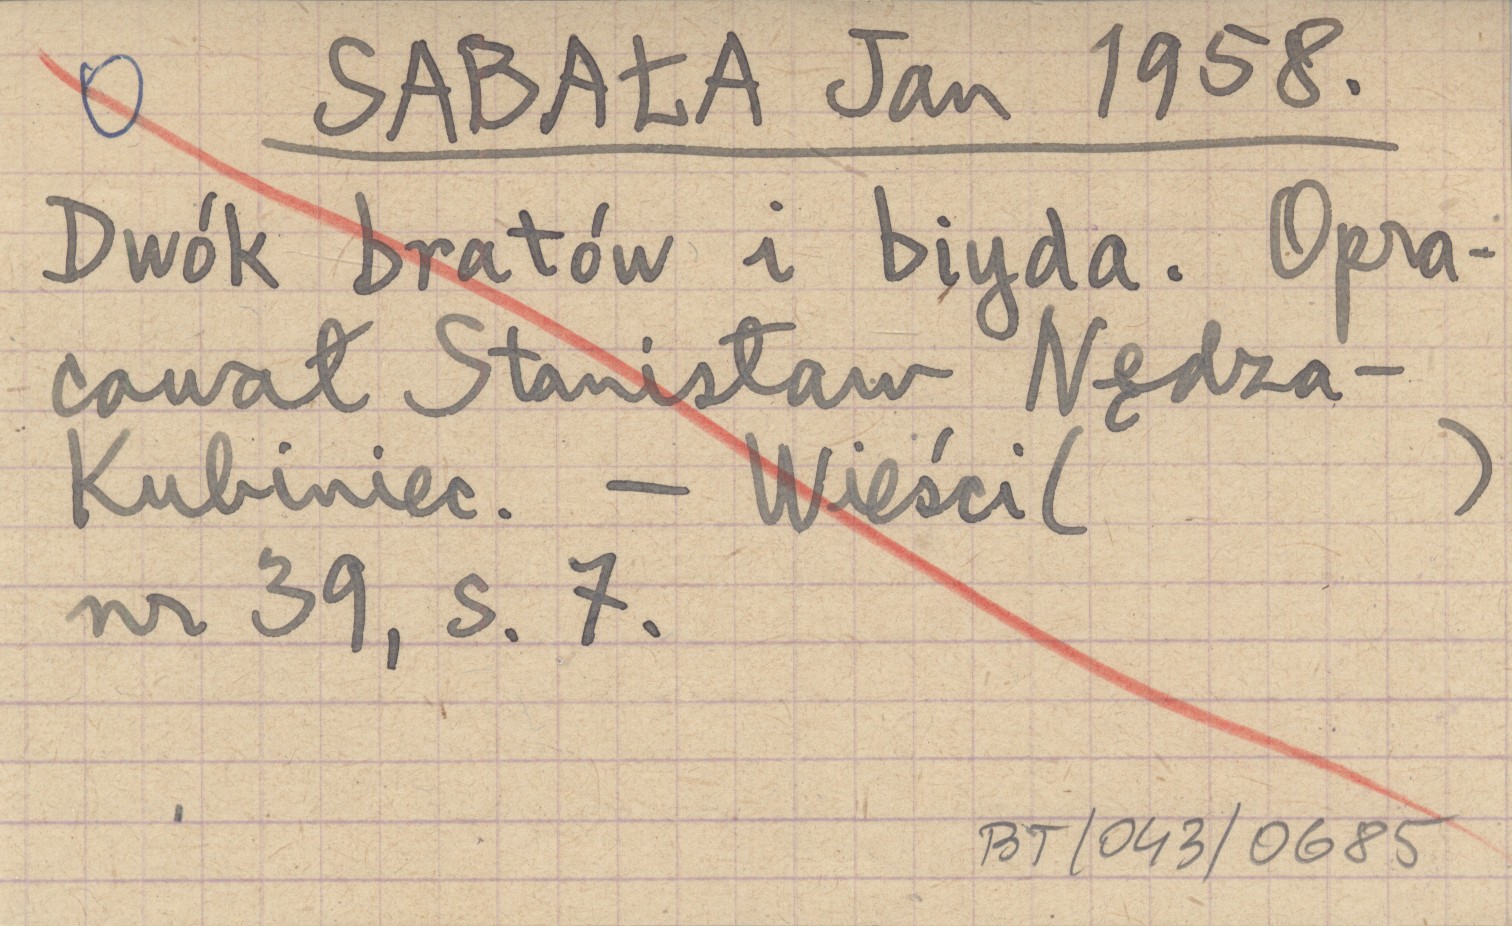 O SABAŁA Jan 1958.
Dwók bratów i biyda. Opra-
cował Stanisław Nędza-
Kubiniec. — Wieści (          )
nr 39, s. 7.
BT/043/0685